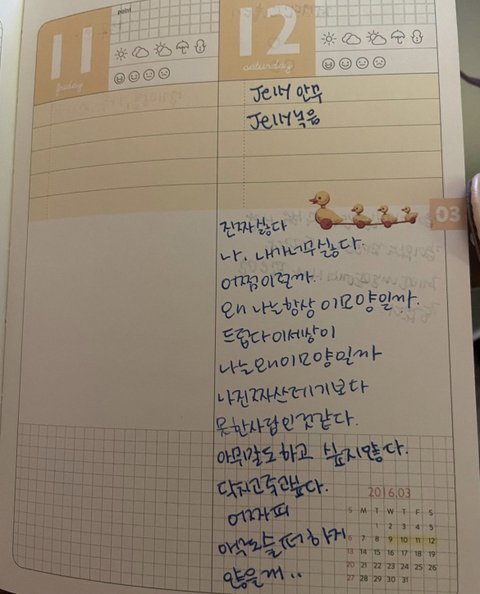 11
friday
point
12
saturday
Jelly 안무
Jelly 녹음
03
진짜싫다
나. 내가너무싫다.
어쩜이럴까.
왜 나는항상 이모양일까.
드럽다이세상이
나는왜이모양일까
나진짜쓰레기보다
못한사람인것같다.
아무말도하고 싶지않다.
닥치고죽고싶다.
어차피
않을게..
2016.03
S M T W T F S
1 2 3 4 5
6 7 8 9 10 11 12
13 14 15 16 17 18 19
20 21 22 23 24 25 26
27 28 29 30 31